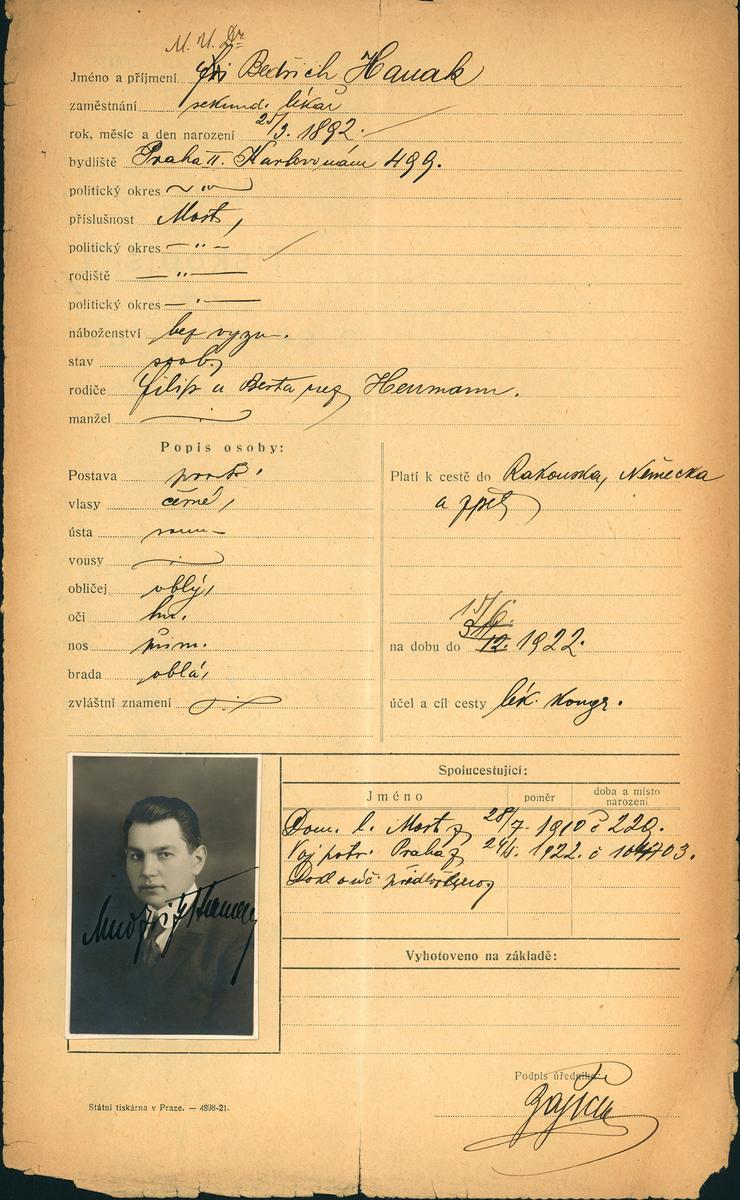 M. U. Dr
Jméno a příjmení Jiří Bedřich Hanak
zaměstnání sekund. lékař
rok, měsíc a den narození 25/3. 1892.
bydliště Praha II. Karlovo nám 499.
politický okres — „ —
příslušnost Most,
politický okres — „ —
rodiště — „ —
politický okres — „ —
náboženství bez vyzn.
stav svob.
rodiče Filip a Berta roz Heumann.
manžel
Popis osoby:
Postava prost.
vlasy černé,
ústa
vousy
obličej oblý,
oči hn.
nos přim.
brada oblá,
zvláštní znamení
Platí k cestě do Rakouska, Německa
a zpět
15/6.
na dobu do 31/12. 1922.
účel a cíl cesty lék. kongr.
Spolucestující:
Jméno poměr doba a místo narození
Dom. l. Most z 28/7. 1910 č 229.
Voj potr. Praha z 1922. č
předloženo
Vyhotoveno na základě:
Podpis úředníka:
Státní tiskárna v Praze. — 4898-21.